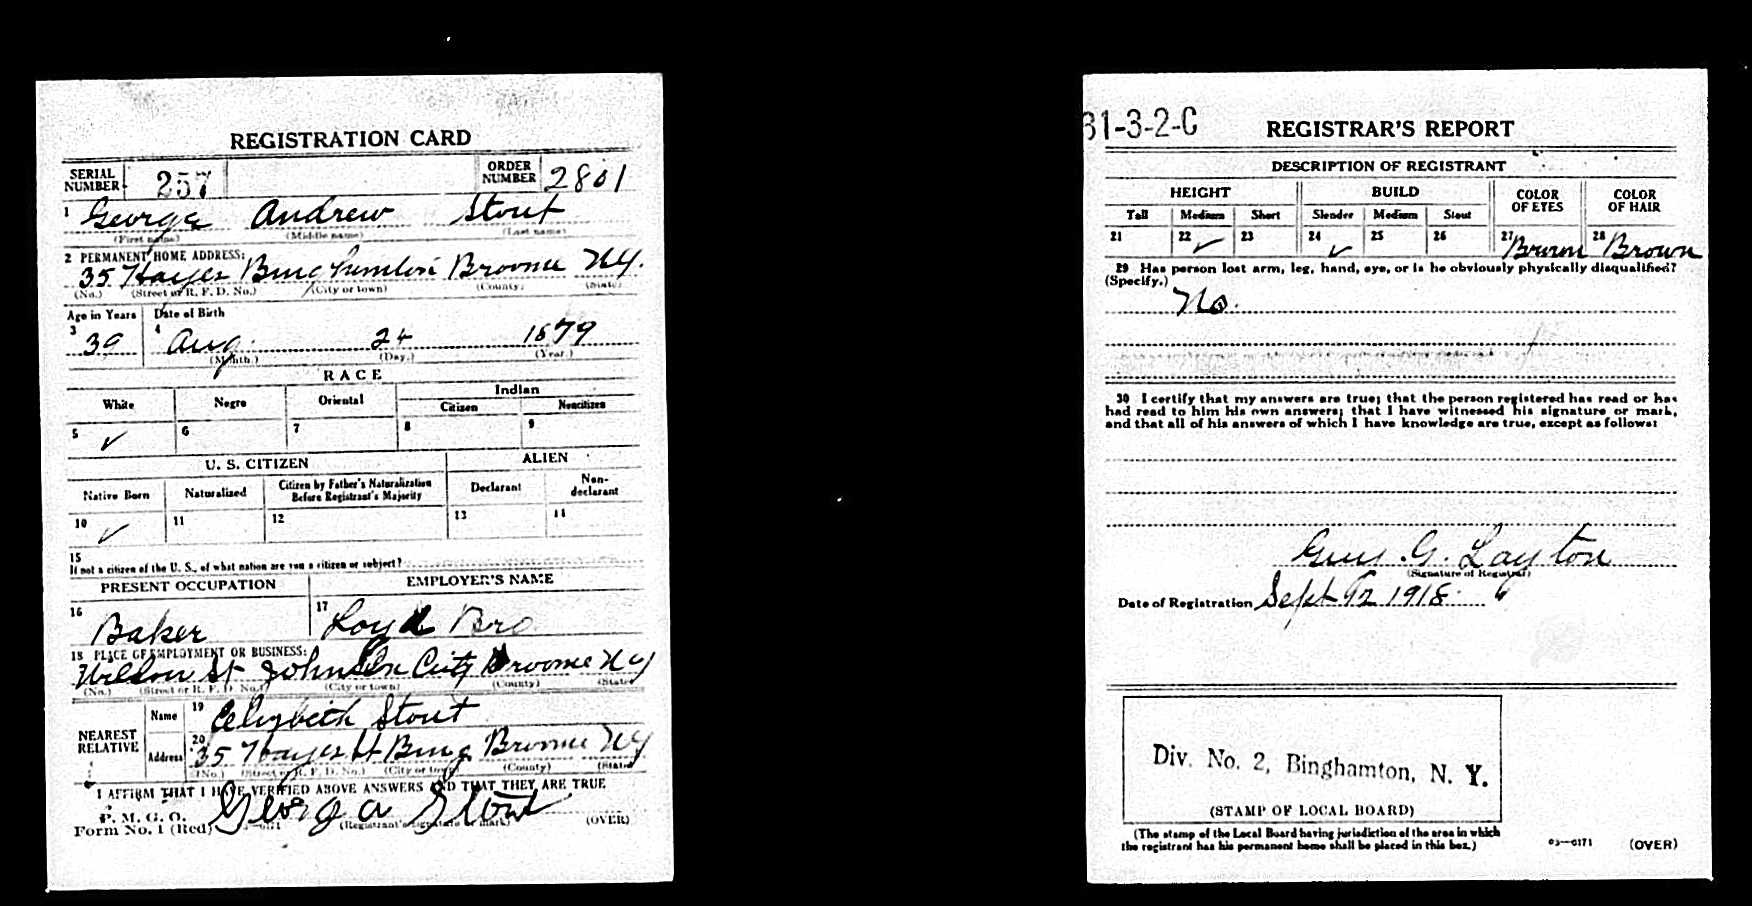 REGISTRATION CARD
SERIAL NUMBER 257 ORDER NUMBER 2801
1 George Andrew Stout
(First name) (Middle name) (Last name)
2 PERMANENT HOME ADDRESS:
35 Hayes Binghamton Broome N.Y.
(No.) (Street or R. F. D. No.) (City or town) (County) (State)
Age in Years Date of Birth
3 39 4 Aug. 24 1879
(Month.) (Day.) (Year.)
RACE
White Negro Oriental Indian
Citizen Noncitizen
5 ✓ 6 7 8 9
U. S. CITIZEN ALIEN
Native Born Naturalized Citizen by Father's Naturalization Before Registrant's Majority Declarant Non-declarant
10 ✓ 11 12 13 14
15
If not a citizen of the U. S., of what nation are you a citizen or subject?
PRESENT OCCUPATION EMPLOYER'S NAME
16 Baker 17 Loyd Bro
18 PLACE OF EMPLOYMENT OR BUSINESS:
Wilson St Johnson City Broome N Y
(No.) (Street or R. F. D. No.) (City or town) (County) (State)
NEAREST RELATIVE
Name 19 Stout
Address 20 35 Hayes St Bing Broome N Y
(No.) (Street or R. F. D. No.) (City or town) (County) (State)
I AFFIRM THAT I HAVE VERIFIED ABOVE ANSWERS AND THAT THEY ARE TRUE
P. M. G. O.
Form No. 1 (Red) George A Stout
(Registrant's signature or mark) (OVER)
31-3-2-C REGISTRAR'S REPORT
DESCRIPTION OF REGISTRANT
HEIGHT BUILD COLOR OF EYES COLOR OF HAIR
Tall Medium Short Slender Medium Stout
21 22 ✓ 23 24 ✓ 25 26 27 Brown 28 Brown
29 Has person lost arm, leg, hand, eye, or is he obviously physically disqualified?
(Specify.) No.
30 I certify that my answers are true; that the person registered has read or has
had read to him his own answers; that I have witnessed his signature or mark,
and that all of his answers of which I have knowledge are true, except as follows:
Guy G. Layton
(Signature of Registrar)
Date of Registration Sept 12 1918
Div. No. 2, Binghamton, N. Y.
(STAMP OF LOCAL BOARD)
(The stamp of the Local Board having jurisdiction of the area in which
the registrant has his permanent home shall be placed in this box.)
03—6171 (OVER)